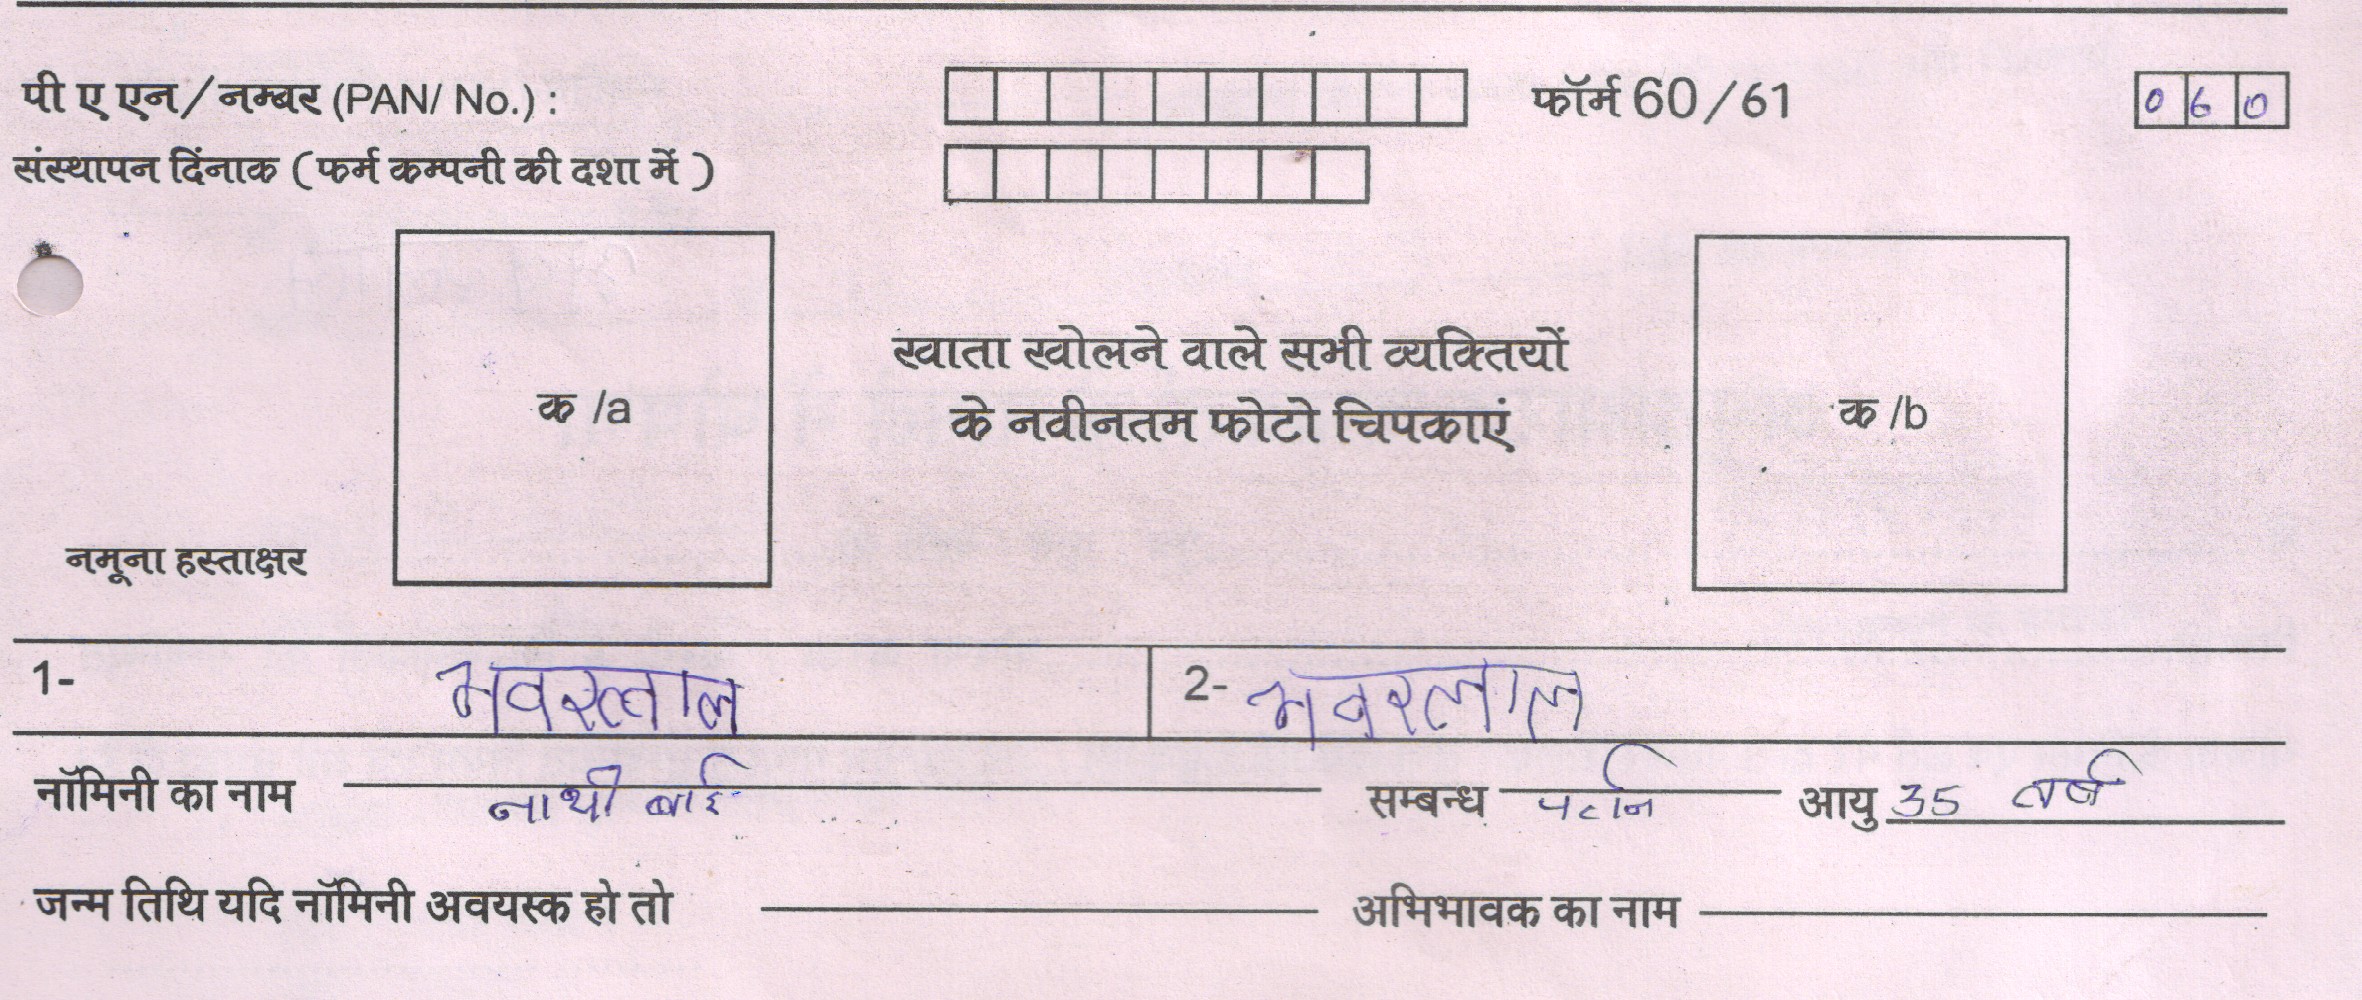 पी ए एन/नम्बर (PAN/ No.) : फॉर्म 60/61 060
संस्थापन दिंनाक (फर्म कम्पनी की दशा में)
खाता खोलने वाले सभी व्यक्तियों
क /a क /b
के नवीनतम फोटो चिपकाएं
नमूना हस्ताक्षर
1- भवरलाल 2- भवरलाल
नॉमिनी का नाम नाथी बाई सम्बन्ध पत्नि आयु 35 वर्ष
जन्म तिथि यदि नॉमिनी अवयस्क हो तो अभिभावक का नाम